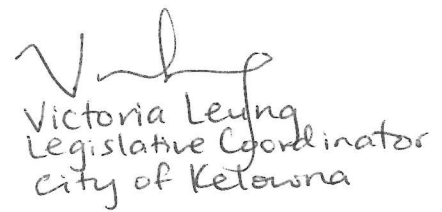 Victoria Leung
Legislative Coordinator
City of Kelowna